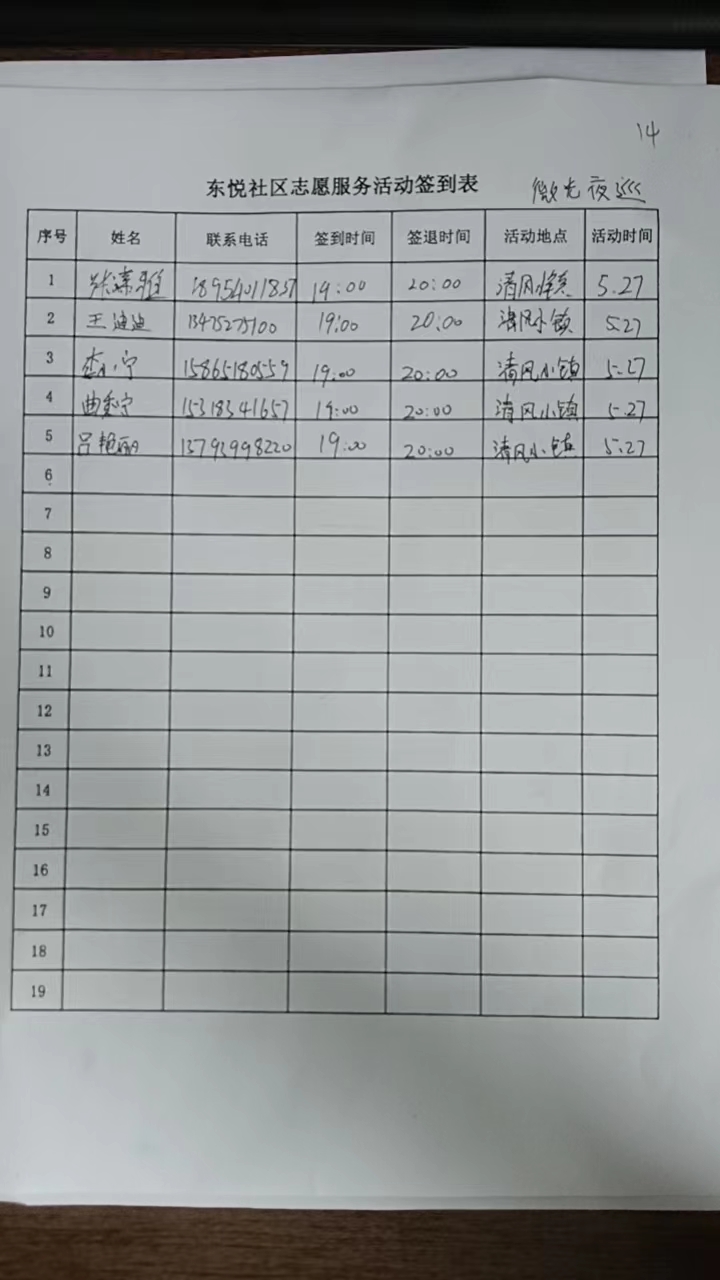 14
东悦社区志愿服务活动签到表 微光夜巡
序号 姓名 联系电话 签到时间 签退时间 活动地点 活动时间
1 18954011837 19:00 20:00 清风小镇 5.27
2 王迪迪 13475275100 19:00 20:00 清风小镇 5.27
3 15865180559 19:00 20:00 清风小镇 5.27
4 15318341657 19:00 20:00 清风小镇 5.27
5 吕艳丽 13793998220 19:00 20:00 清风小镇 5.27
6
7
8
9
10
11
12
13
14
15
16
17
18
19